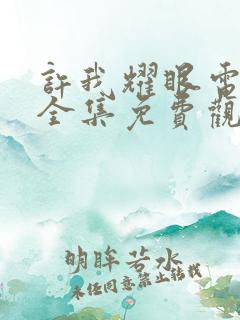 許我耀眼電
全集免費觀
明眸若水
未经同意禁止转载